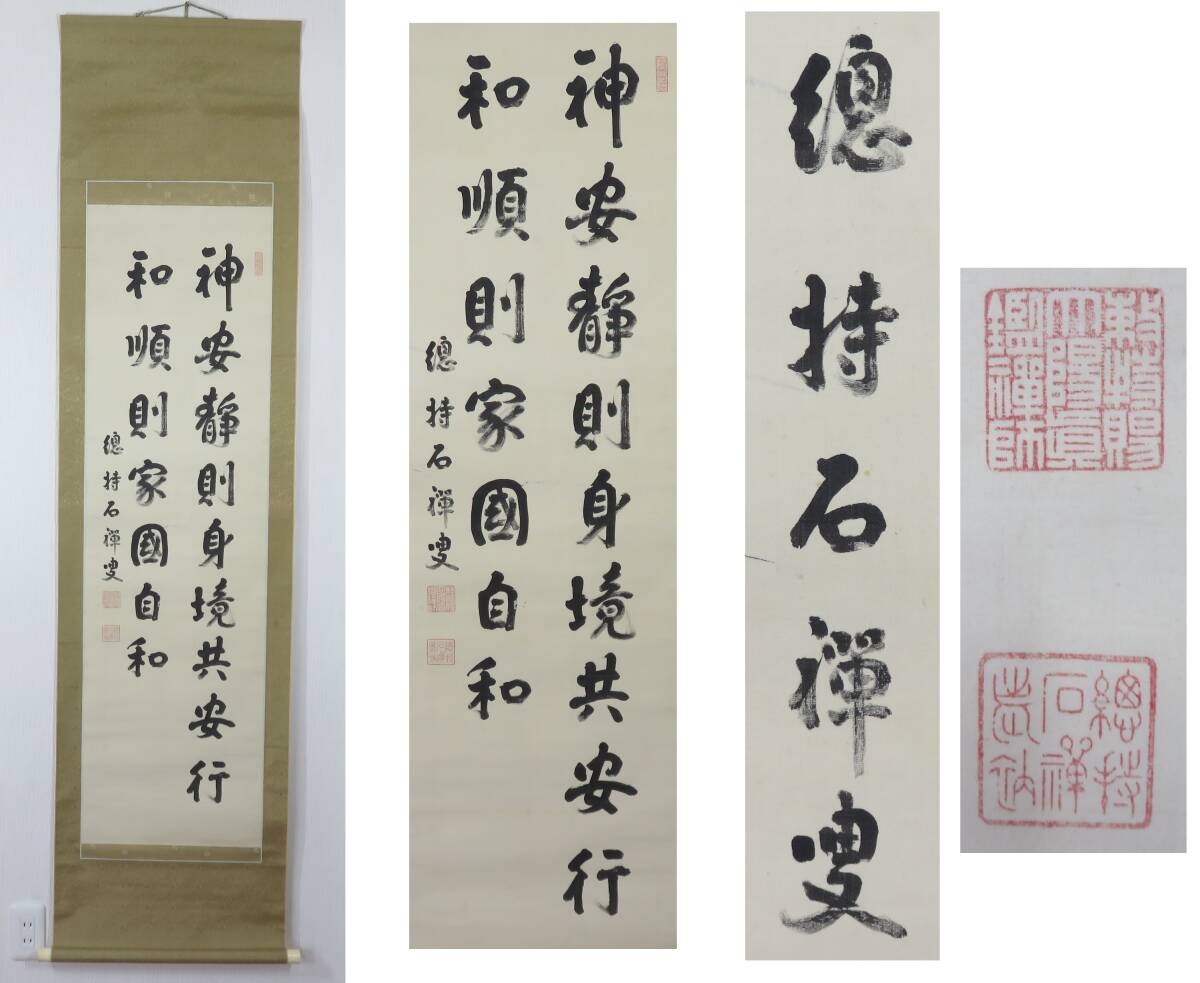 神安靜則身境共安行
和順則家國自和
總持石禪叟
神安靜則身境共安行
和順則家國自和
總持石禪叟
總持石禪叟
勅特賜
大陽眞
鑑禪師
總持
石禪